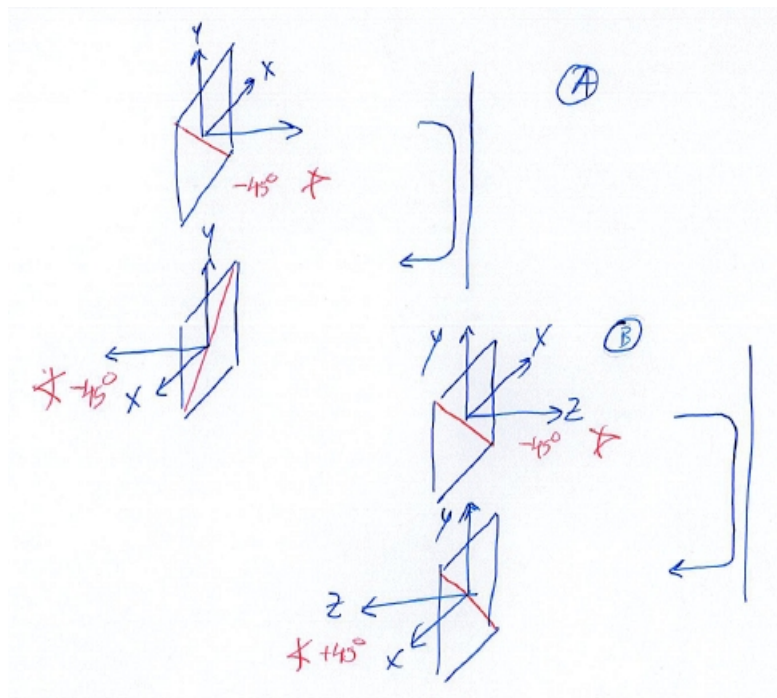 Y
X
A
-45°
Y
-45° X
Y
X
B
Z
-45°
Y
Z
+45° X